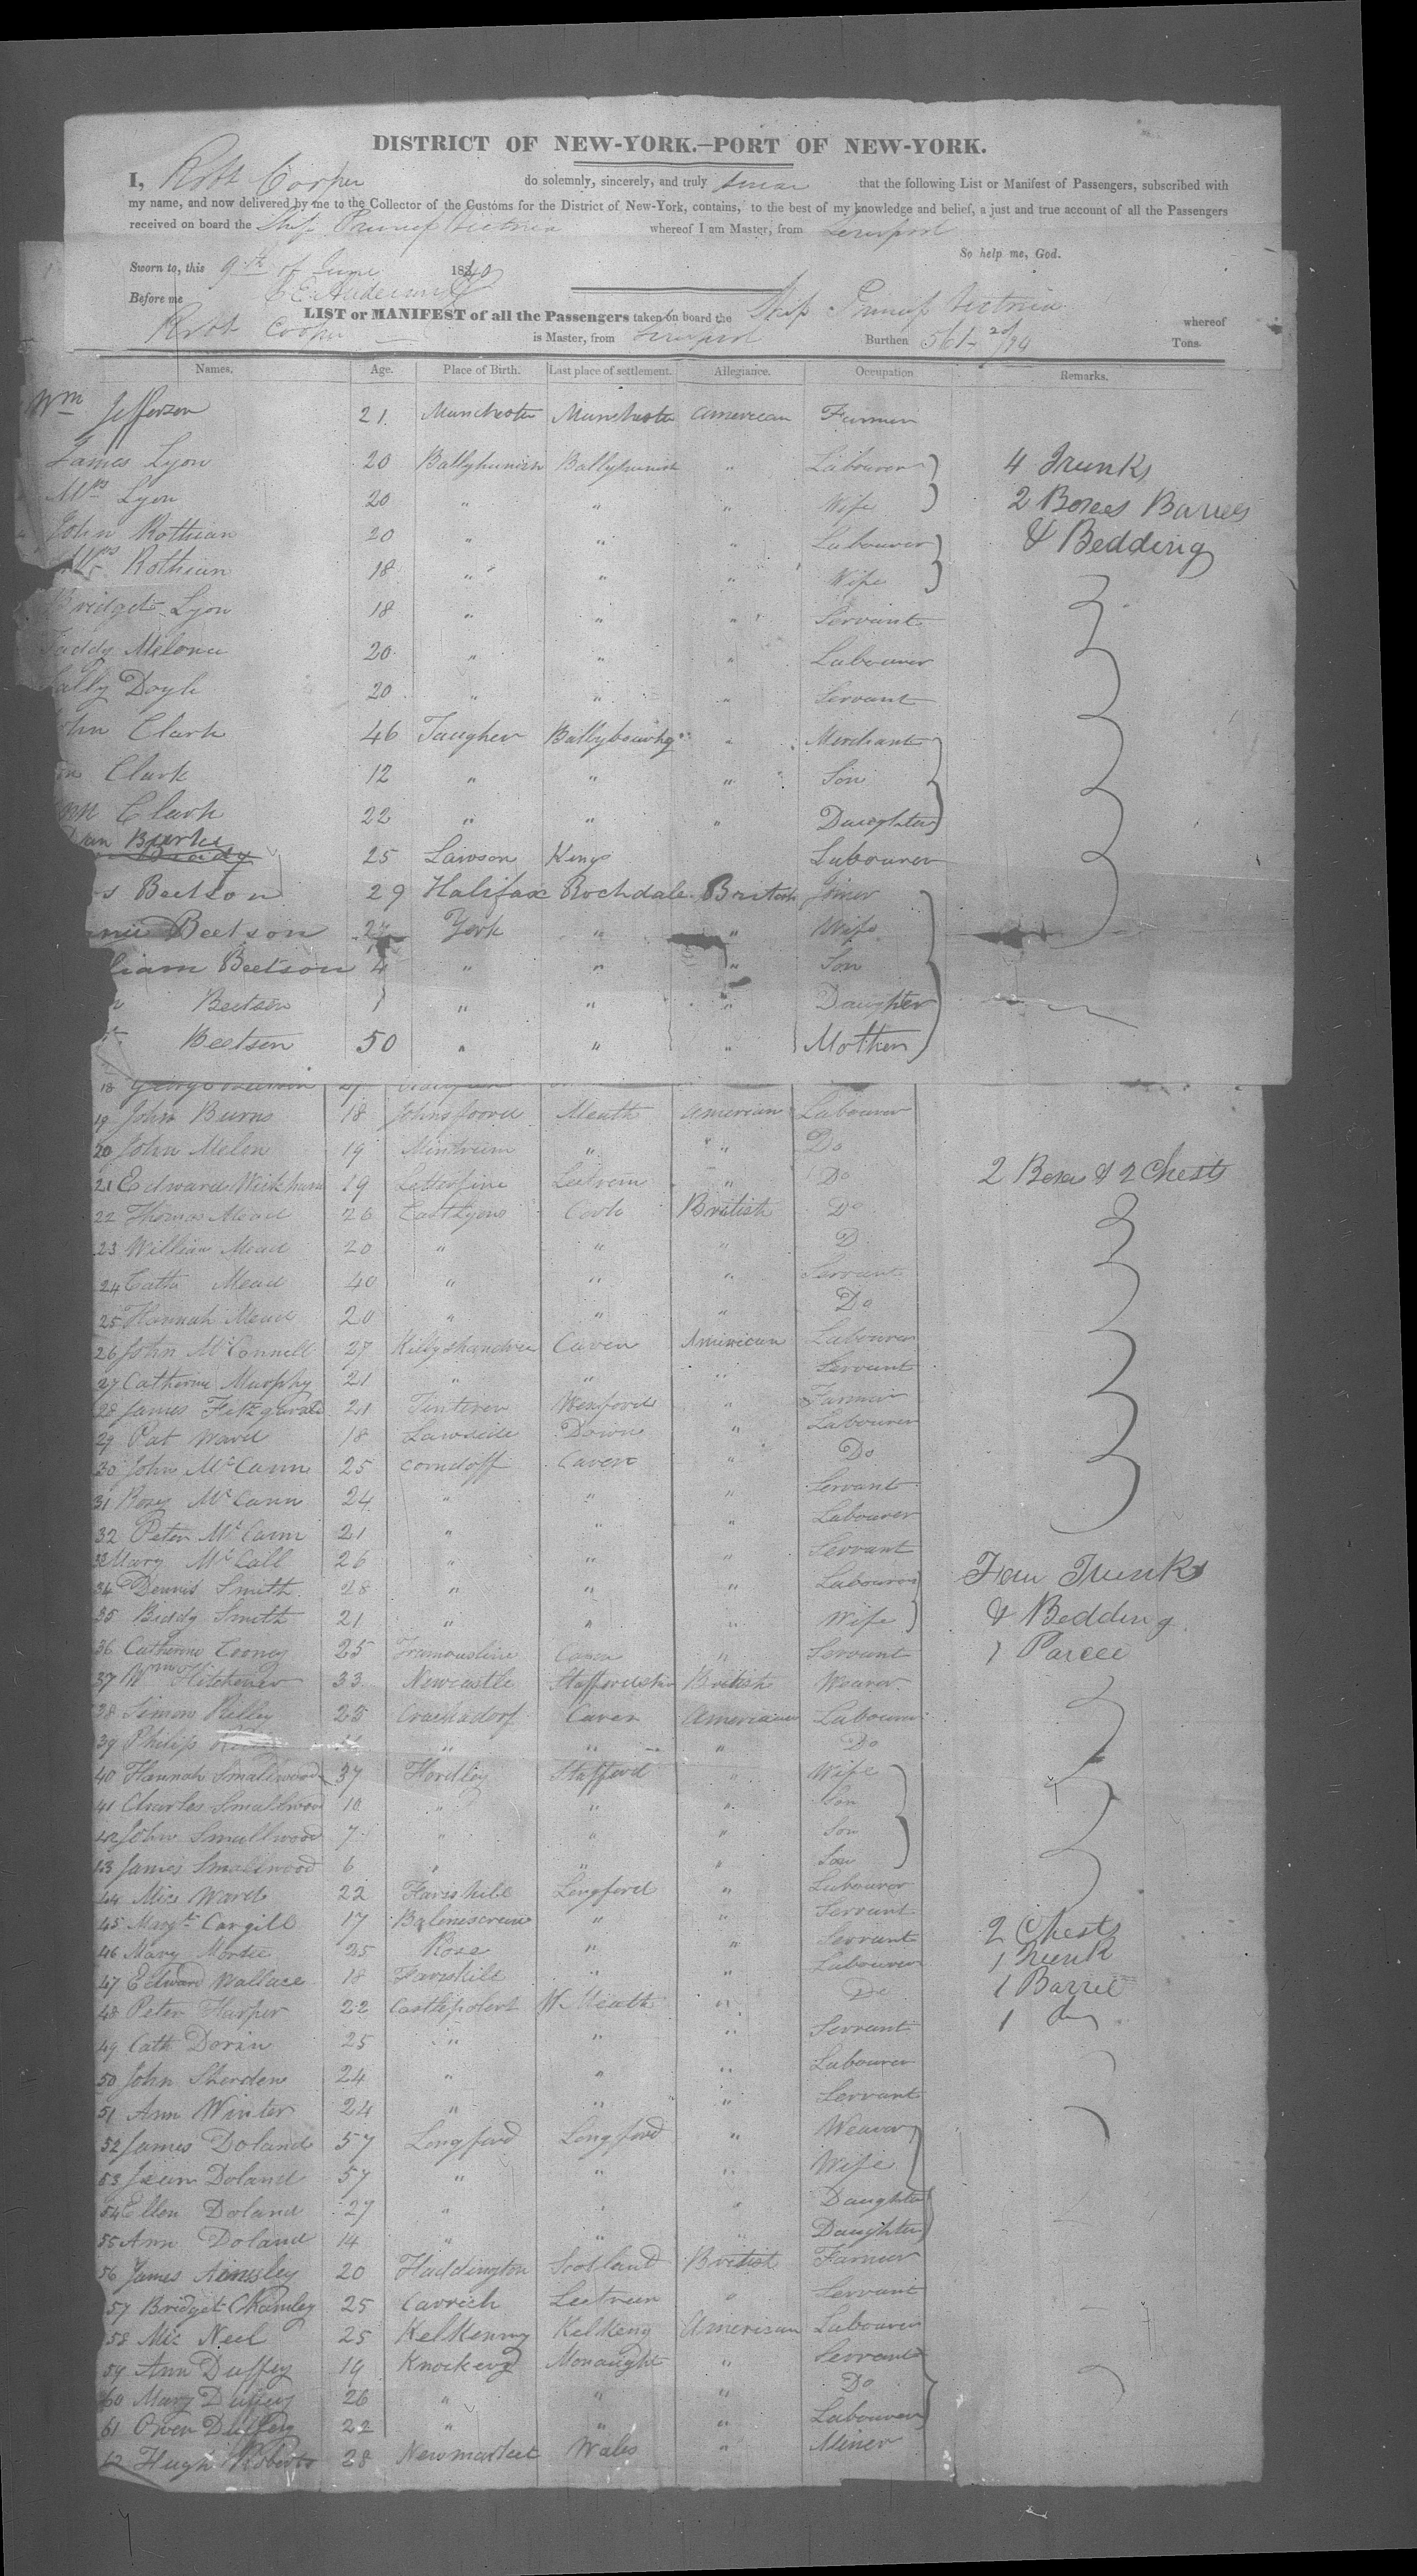 DISTRICT OF NEW-YORK.—PORT OF NEW-YORK.
I, Robt Cooper do solemnly, sincerely, and truly swear that the following List or Manifest of Passengers, subscribed with
my name, and now delivered by me to the Collector of the Customs for the District of New-York, contains, to the best of my knowledge and belief, a just and true account of all the Passengers
received on board the Ship whereof I am Master, from Liverpool
So help me, God.
Sworn to, this 9th of June 1840
Before me
LIST or MANIFEST of all the Passengers taken on board the Ship whereof
Robt Cooper is Master, from Liverpool Burthen 561 20/94 Tons.
Names. Age. Place of Birth. Last place of settlement. Allegiance. Occupation Remarks.
Wm Jefferson 21 Manchester Manchester American Farmer
James Lyon 20 " Labourer 4 Trunks
Mrs Lyon 20 " " " Wife 2 Boxes Barrels
John Rothian 20 " " " Labourer & Bedding
Mrs Rothian 18 " " " Wife
Bridget Lyon 18 " " " Servant
20 " " " Labourer
Doyle 20 " " " Servant
Clark 46 " Merchant
Clark 12 " " " Son
Clark 22 " " " Daughter
Burke 25 Lawson Kings Labourer
Beetson 29 Halifax Rochdale British Joiner
Beetson 27 York " " Wife
liam Beetson 4 " " " Son
Beetson 1 " " " Daughter
Beetson 50 " " " Mother
18 George
19 John Burns 18 Meath American Labourer
20 John Melon 19 " " Do
21 Edward 19 Leitrim " Do 2 Boxes & 2 Chests
22 Thomas Mead 26 Cork British Do
23 William Mead 20 " " " D
24 Cath Mead 40 " " " Servant
25 Hannah Mead 20 " " " Do
26 John McConnell 27 Killyshandra Caven American Labourer
27 Catherine Murphy 21 " " " Servant
28 James Fitzgerald 21 Tintren Wexford " Farmer
29 Pat Ward 18 Down " Labourer
30 John McCann 25 Caven " Do
31 Rosy McCann 24 " " " Servant
32 Peter McCann 21 " " " Labourer
33 Mary McCall 26 " " " Servant
34 Dennis Smith 28 " " " Labourer Trunks
35 Biddy Smith 21 " " " Wife & Bedding
36 Catherine Cooney 25 Caven " Servant 1 Parcel
37 Wm Hitchener 33 Newcastle Staffordshire British Weaver
38 Simon Rilley 25 Caven American Labourer
39 Philip " " " Do
40 Hannah Smallwood 37 Hordley Stafford " Wife
41 Charles Smallwood 10 " " " Son
42 John Smallwood 7 " " " Son
43 James Smallwood 6 " " " Son
44 Mic Ward 22 Longford " Labourer
45 Margt Cargill 17 " " Servant
46 Mary 25 Rose " " Servant 2 Chests
47 Edward Wallace 18 " " Labourer 1 Trunk
48 Peter Harper 22 W. Meath " Do 1 Barrel
49 Cath Dorin 25 " " " Servant 1
50 John Sherden 24 " " " Labourer
51 Ann Winter 24 " " " Servant
52 James Doland 57 Longford Longford " Weaver
53 Jean Doland 57 " " " Wife
54 Ellen Doland 27 " " " Daughter
55 Ann Doland 14 " " " Daughter
56 James Ainssley 20 Haddington Scotland British Farmer
57 Bridget 25 Carrick Leetrem " Servant
58 Mic Neil 25 Kelkenny Kelkeny American Labourer
59 Ann Duffey 19 " Servant
60 Mary Duffey 26 " " " Do
61 Owen Duffey 22 " " " Labourer
62 Hugh Roberts 28 Newmarket Wales " Miner